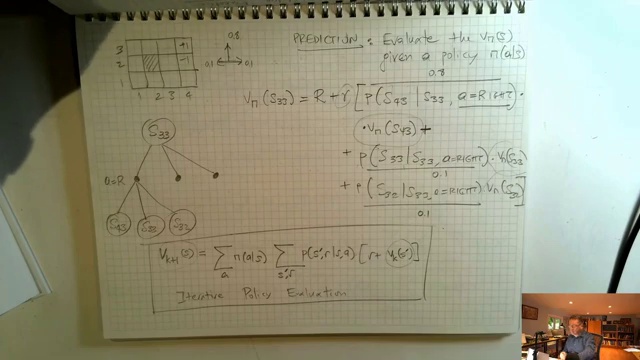 PREDICTION : Evaluate the Vπ(s)
given a policy π(a|s)
3 +1
2 -1
1
1 2 3 4
0.8
0.1 0.1
0.8
Vπ(S33) = R + γ [ p(S43 | S33, a=RIGHT) ·
· Vπ(S43) +
+ p(S33 | S33, a=RIGHT) · Vπ(S33)
0.1
+ p(S32 | S33, a=RIGHT) · Vπ(S32) ]
0.1
S33
a=R
S43 S33 S32
Vk+1(s) = ∑a π(a|s) ∑s',r p(s',r|s,a) [r + Vk(s')]
Iterative Policy Evaluation